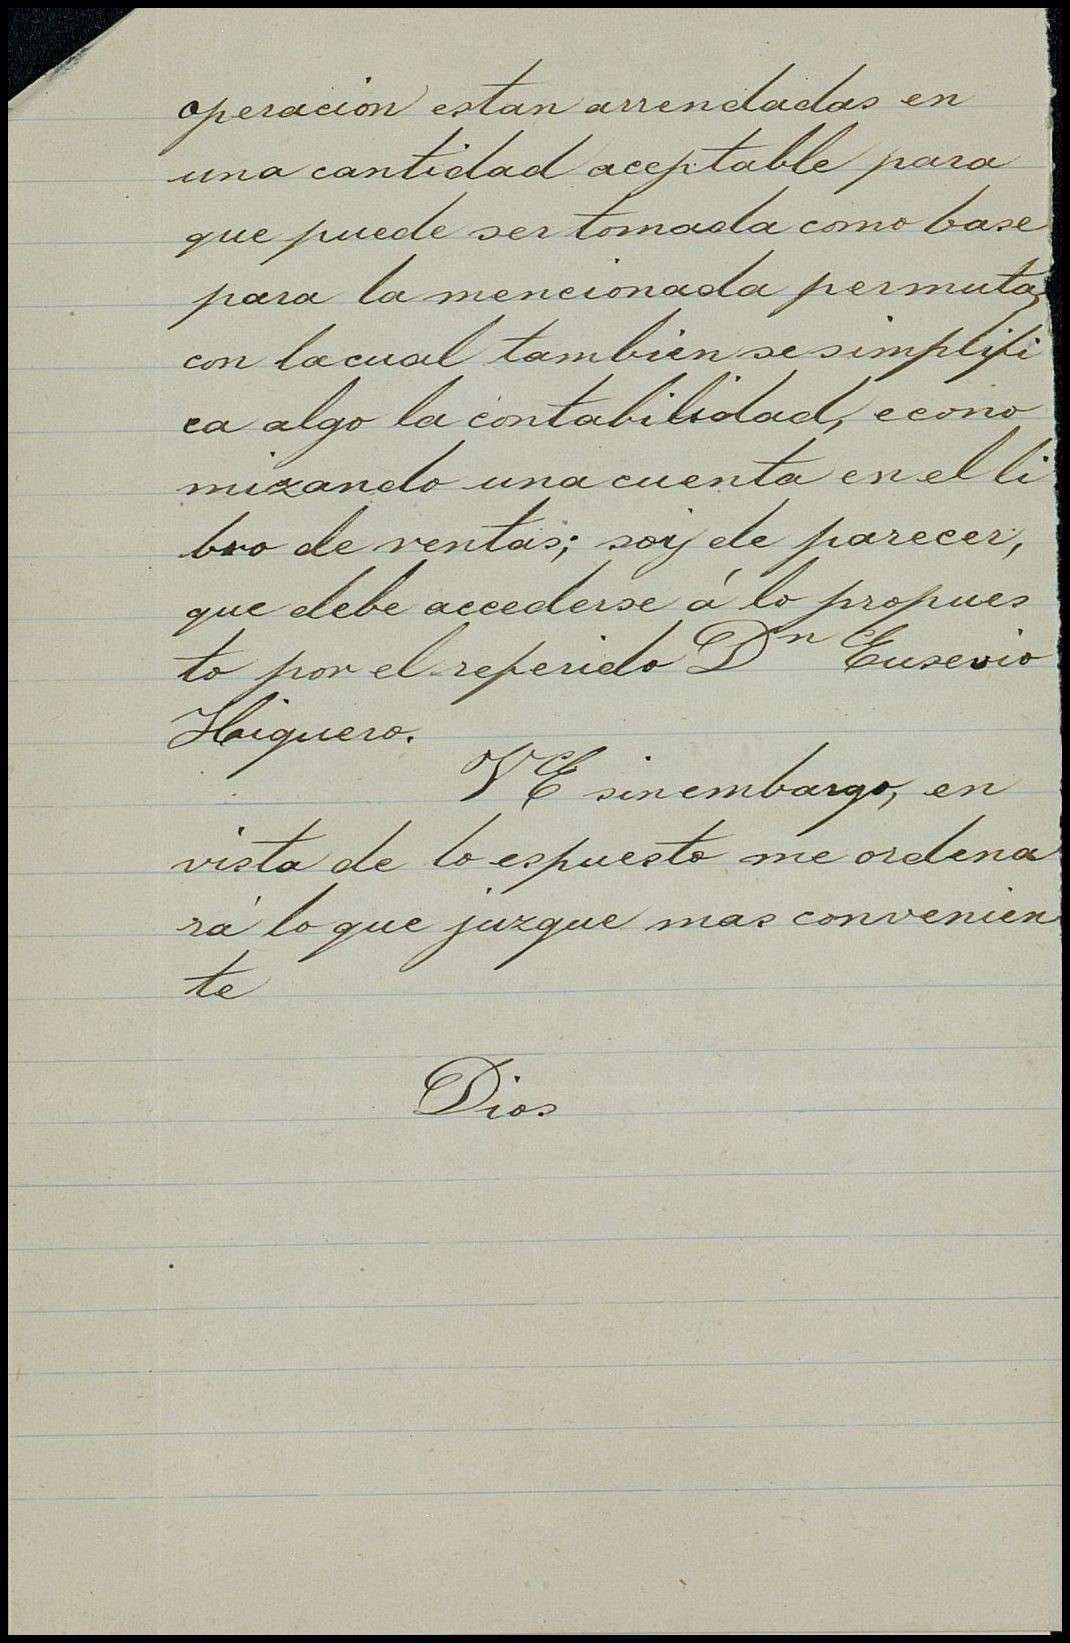 operacion estan arrendadas en
una cantidad aceptable para
que puede ser tomada como base
para la mencionada permuta,
con la cual tambien se simplifi
ca algo la contabilidad, econo
mizando una cuenta en el li
bro de rentas; soy de parecer,
que debe accederse á lo propues
to por el referido Dn Eusevio
Higuero.
VE sin embargo, en
vista de lo espuesto me ordena
rá lo que juzgue mas convenien
te
Dios